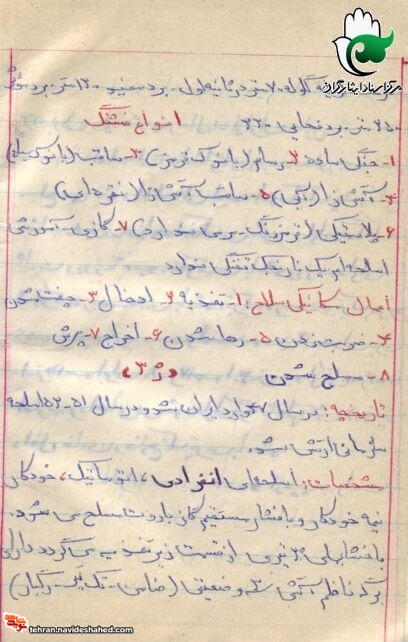 مرکز اسناد ایثارگران
گلوله ۷۰۰ متر در ثانیه اول - برد مفید ۱۲۰۰ متر - برد مؤثر
۲۵۰۰ متر - برد نهایی ۲۶۰۰
انواع فشنگ
۱- جنگی ساده ۲- رسام (با نوک قرمز) ۳- ثاقب (با نوک سیاه)
۴- آتش زا (آبی) ۵- ثاقب آتش زا (نقره ای)
۶- پلاستیکی (قرمز رنگ - برمی دارد) ۷- گازی - آموزشی
اسلحه آمریکا نارنجک تفنگی دارد
اعمال مکانیکی سلاح: ۱- تغذیه ۲- ادخال ۳- جفت شدن
۴- ضربت زدن ۵- رها شدن ۶- اخراج ۷- پرش
۸- مسلح شدن
« ژ ۳ »
تاریخچه: در سال ۴۷ وارد ایران شد و در سال ۵۱-۵۲ اسلحه
سازمانی ارتش شد.
مشخصات: اسلحه ای انفرادی، اتوماتیک، خودکار
نیمه خودکار و با فشار مستقیم گاز باروت مسلح می شود.
با خشابهای ۲۰ تیری از قسمت زیر تغذیه می گردد دارای
برگه ناظم آتش ۳ وضعیتی (ضامن - تک تیر - رگبار)
tehran.navideshahed.com